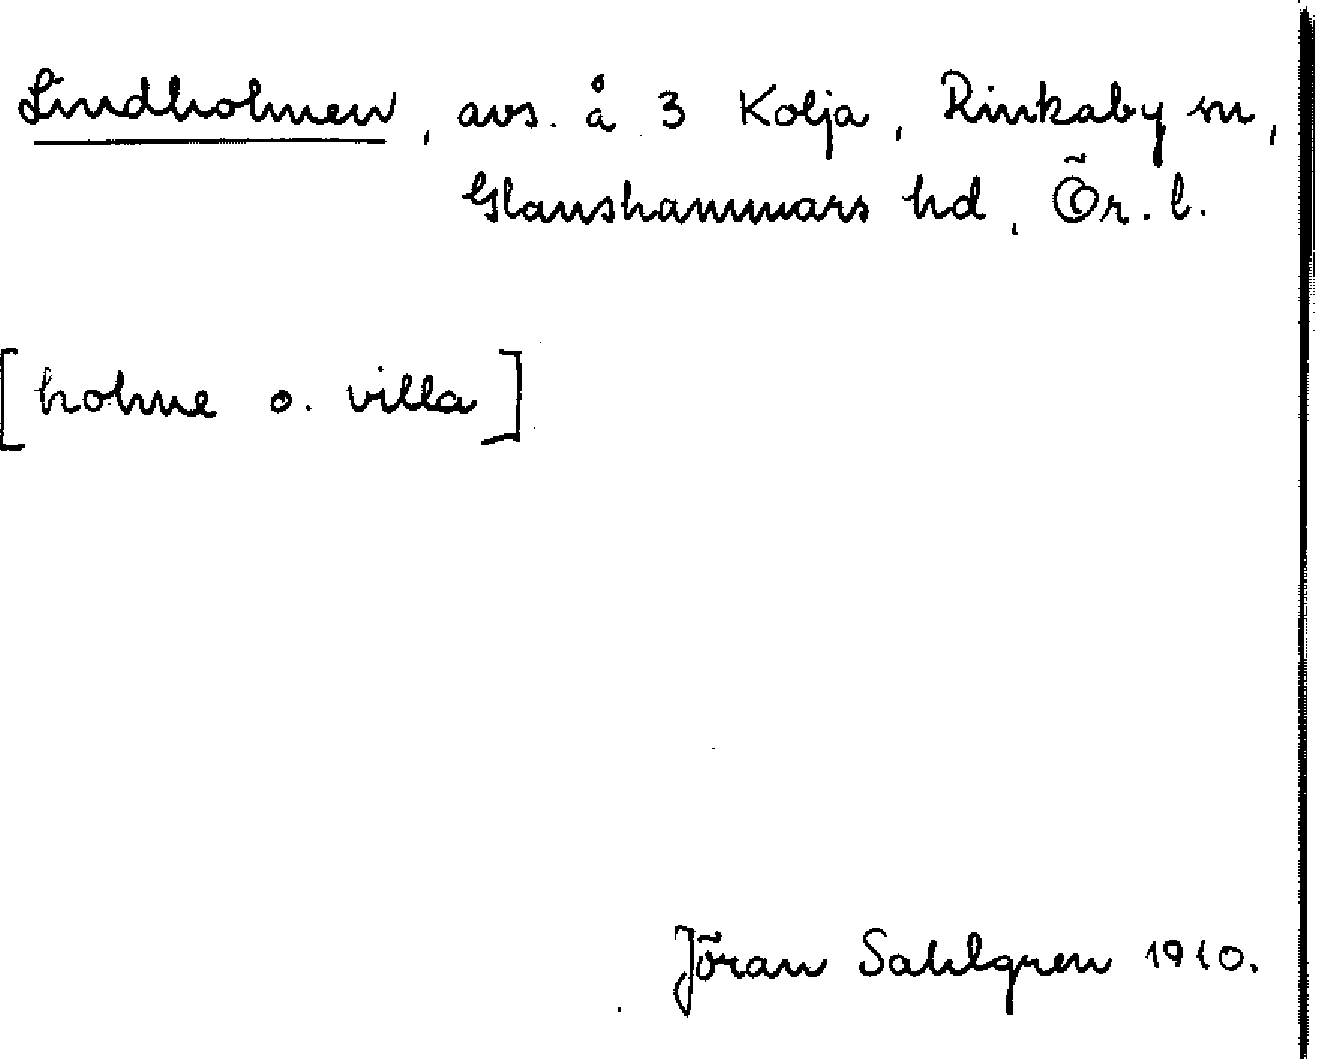 Lindholmen, avs. å 3 Kolja, Rinkaby sn,
Glanshammars hd, Ör. l.
[holme o. villa]
Jöran Sahlgren 1910.